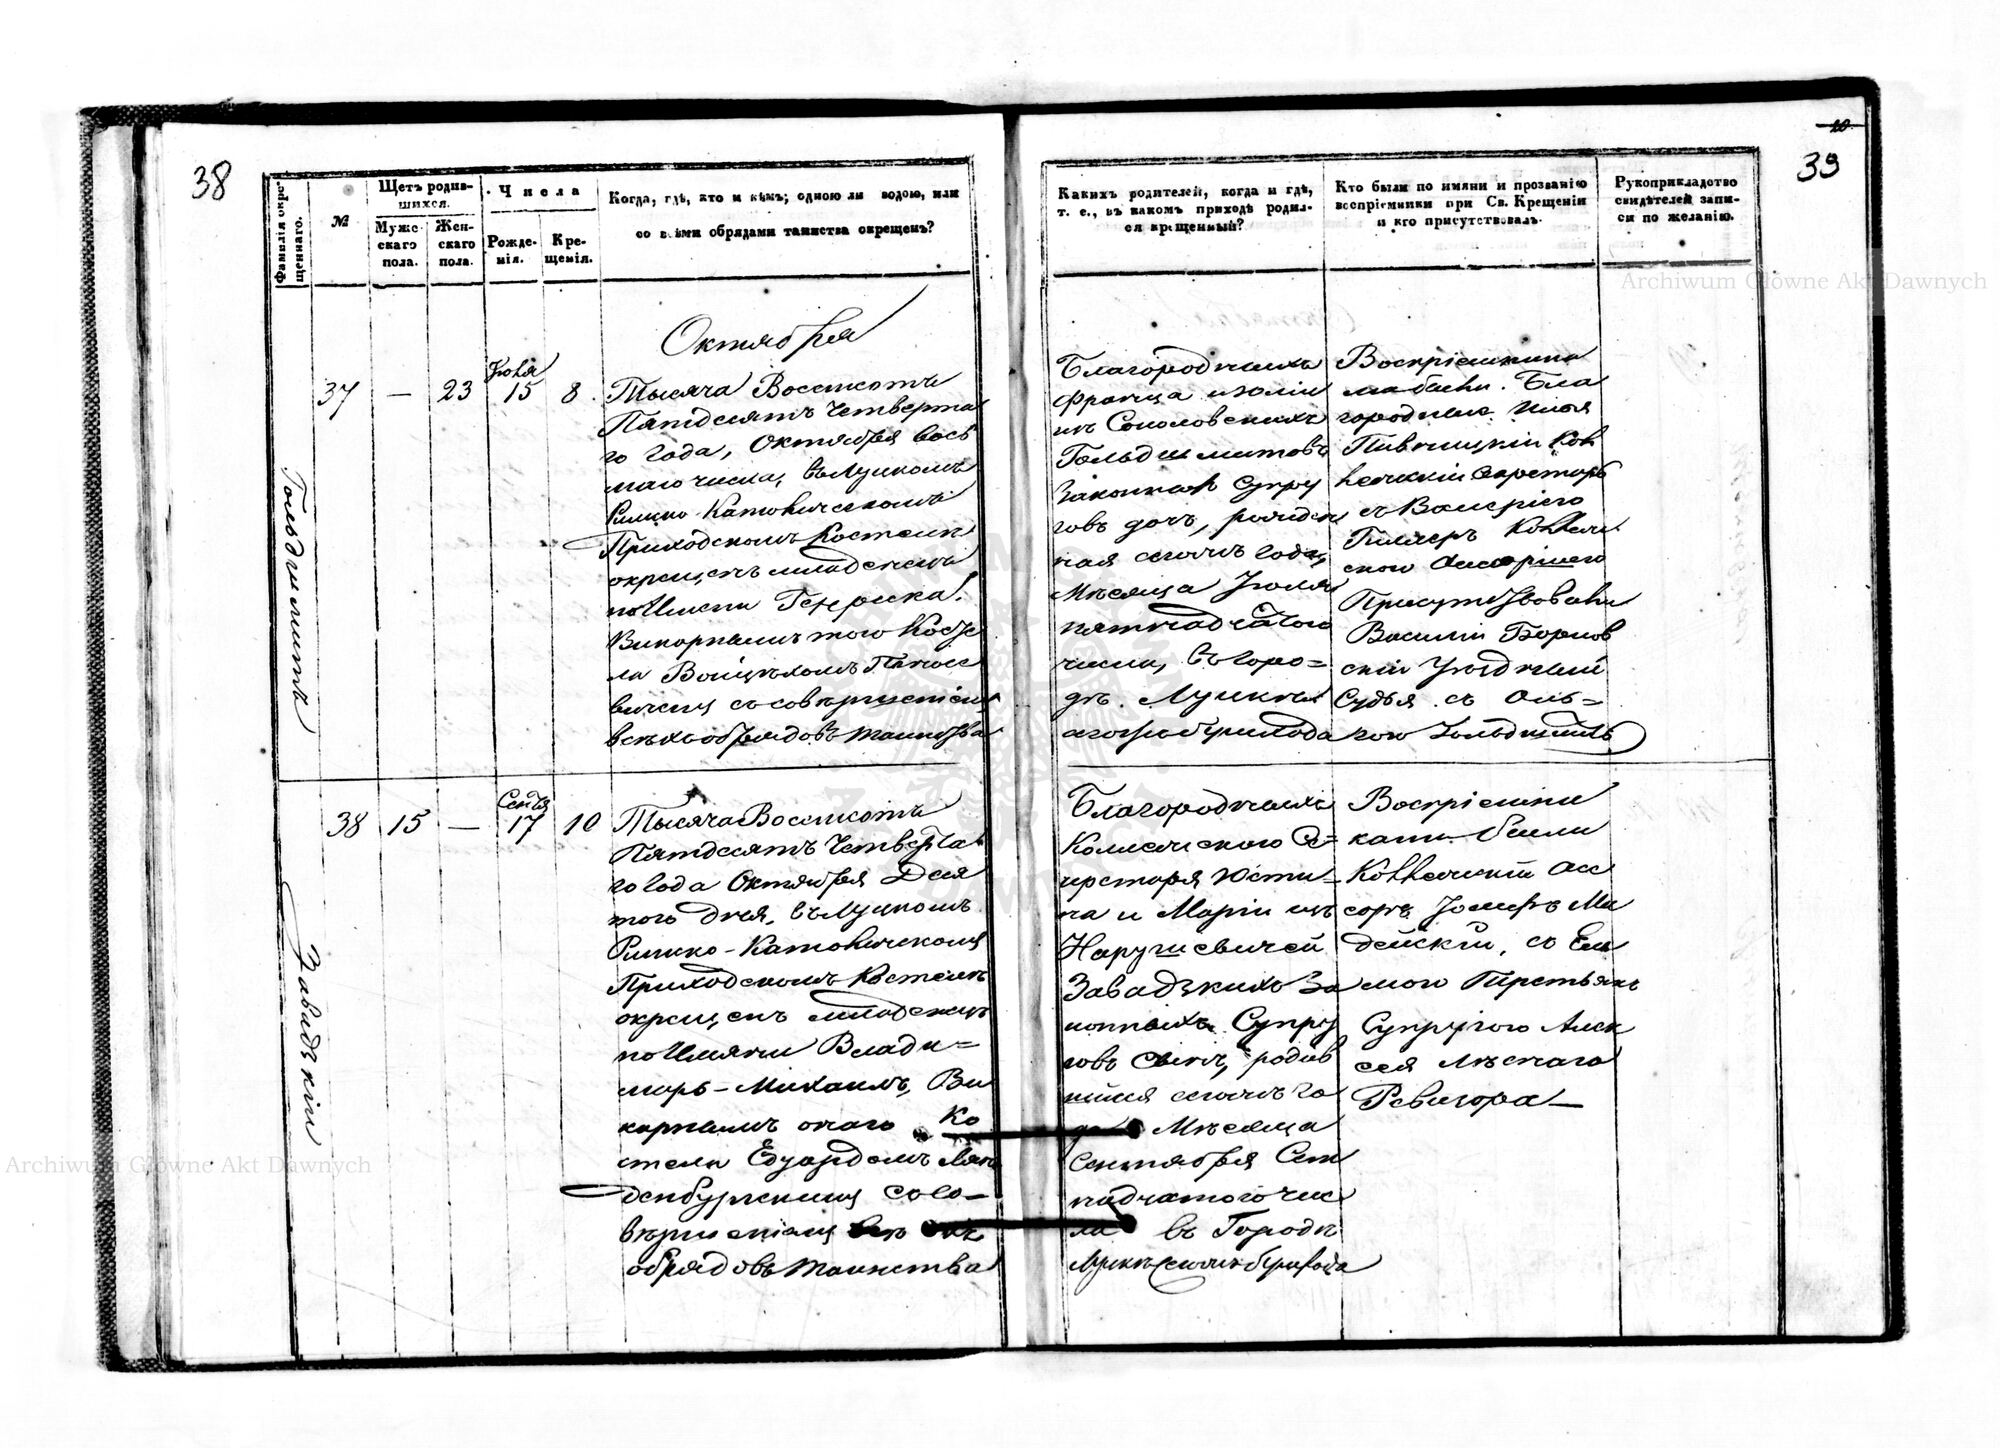 38
Фамилія окре-
щеннаго.
№
Щетъ родив-
шихся.
Мужс-
скаго
пола.
Жен-
скаго
пола.
Числа
Рожде-
нія.
Кре-
щенія.
Когда, гдѣ, кто и кѣмъ; одною ли водою, или
со всѣми обрядами таинства окрещенъ?
Октября
Гольдшмитъ
37
—
23
Іюля
15
8.
Тысяча Восемсотъ
Пятдесятъ Четверта
го Года, Октября вось
маго числа, въ Луцкомъ
Римско-Католическомъ
Приходскомъ Костелѣ
окрещенъ младенецъ
по Имени Генрика.
Викорнымъ того Косте
ла Войцѣхомъ
съ совершеніемъ
всѣхъ обрядовъ таинства
Завадзкій
38
15
—
Сентя
17
10
Тысяча Восемсотъ
Пятдесятъ Четверта
го Года Октября Деся
того дня, въ Луцкомъ
Римско-Католическомъ
Приходскомъ Костелѣ
окрещенъ младенецъ
по Имяни Влади=
міръ-Михаилъ, Ви
карнымъ онаго Ко
стела Едуардомъ
со со-
вершеніемъ всѣхъ
обрядовъ таинства
39
Какихъ родителей, когда и гдѣ,
т. е., въ какомъ приходѣ родил-
ся крещенный?
Кто были по имяни и прозванію
воспріемники при Св. Крещеніи
и кто присутствовалъ.
Рукоприкладство
свидѣтелей запи-
си по желанію.
Благородныхъ
Франца и Юліи
изъ Соколовскихъ
Гольдшмитовъ
Законныхъ Супру
говъ дочь, рожден
ная сего года,
Мѣсяца Іюля
пятнадцатого
числа, въ Горо=
дѣ Луцкѣ
прихода
Воспріемника
ма были. Бла
городные Илья
Кол
лежскій Секретарь
съ Валеріею
Коллеж
скою
Присутствовали
Василій
скій Уѣздный
Судья съ Оль=
гою Гольдшмитъ
Благородныхъ
Коллежского Се=
кретаря Юсти-
на и Маріи изъ
Нарушевичей
Завадзкихъ За
конныхъ Супру
говъ сынъ, родив
шійся сего Го
да Мѣсяца
Сентября Сем
надцатого чис
ла въ Городѣ
Луцкѣ прихода
Воспріемни
ками были
Коллежскій Асс
соръ Іосифъ Ма
дейскій, съ Еми
Супругою Алек
сея Лѣснаго
Ревизора—
Archiwum Główne Akt Dawnych
Archiwum Główne Akt Dawnych